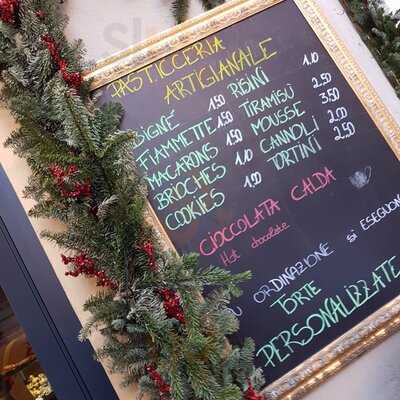 PASTICCERIA
ARTIGIANALE
BIGNÉ 1,50
FIAMMETTE 1,50
MACARONS 1,50
BRIOCHES 1,10
COOKIES 1,00
RISINI 1,10
TIRAMISÙ 2,50
MOUSSE 3,50
CANNOLI 2,50
TORTINI 2,50
CIOCCOLATA CALDA
Hot chocolate
ORDINAZIONE si ESEGUON
TORTE
PERSONALIZZATE